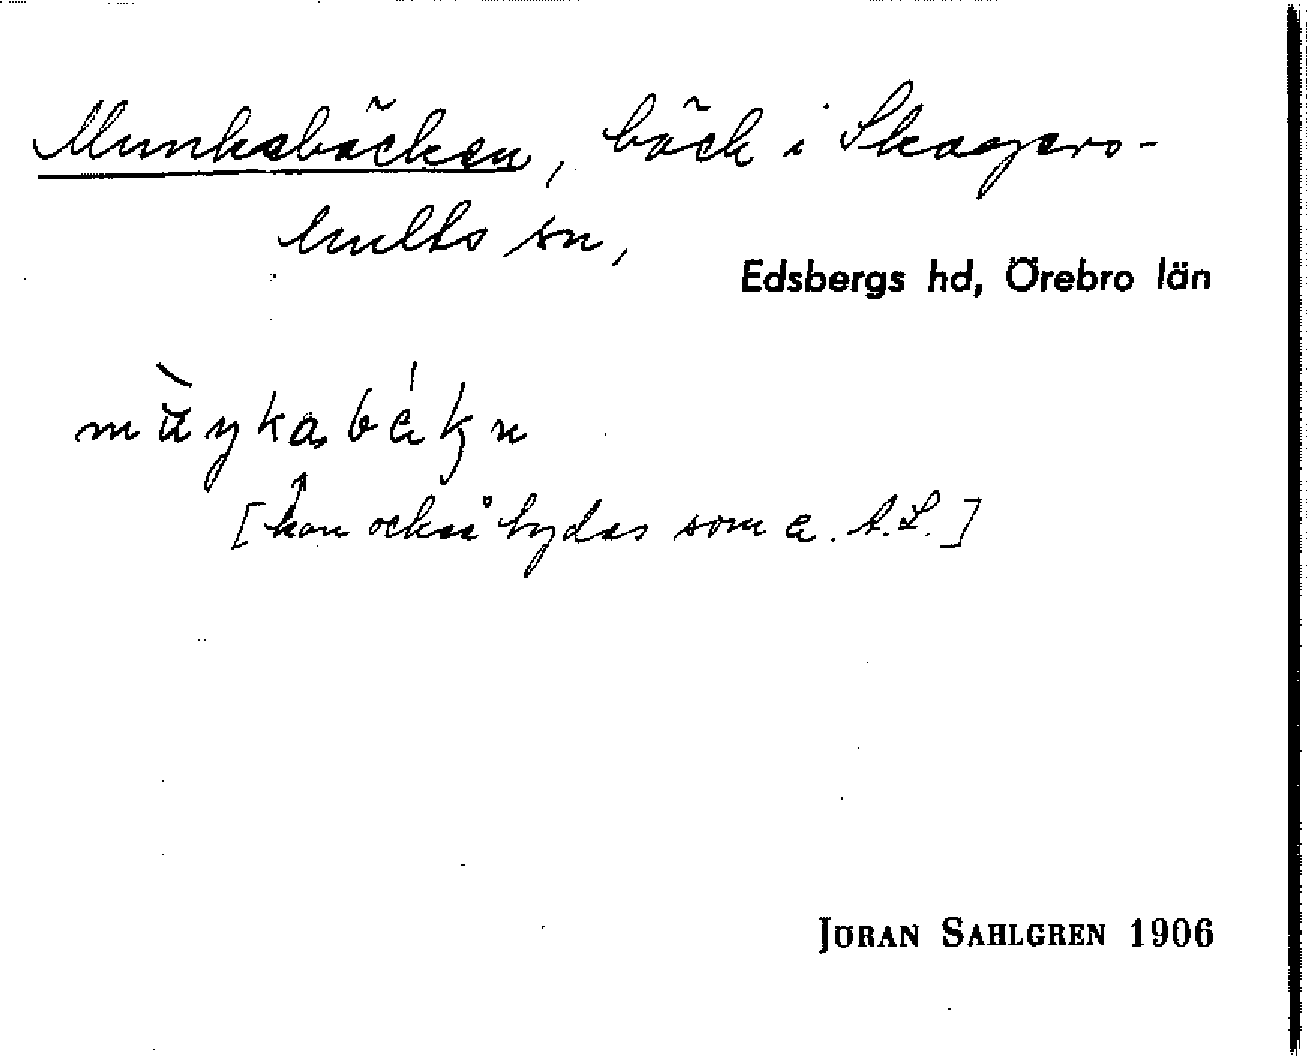 Munkebäcken, bäck i Skagers-
hults sn,
Edsbergs hd, Örebro län
mùŋkabékn
[kan också tydas som e. A.L.]
JÖRAN SAHLGREN 1906